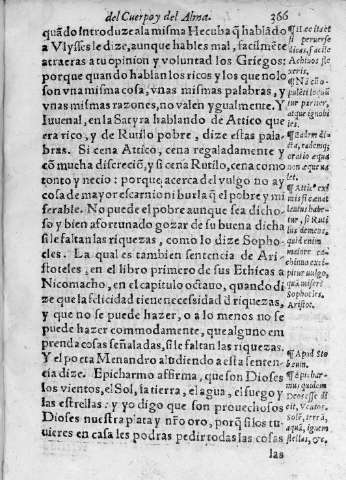 del Cuerpo y del Alma. 266
quãdo introduze a la misma Hecuba q̃ hablãdo
a Vlysses le dize, aunque hables mal, facilmẽte
atraeras a tu opinion y voluntad los Griegos:
porque quando hablan los ricos y los que no lo
son vna misma cosa, vnas mismas palabras, y
vnas mismas razones, no valen ygualmente. Y
Iuuenal, en la Satyra hablando de Attico que
era rico, y de Rutilo pobre, dize estas pala-
bras. Si cena Attico, cena regaladamente y
cõ mucha discreciõ, y si cena Rutilo, cena como
tonto y necio: porque acerca del vulgo no ay
cosa de mayor escarnio ni burla q̃ el pobre y mi
serable. No puede el pobre aunque sea dicho-
so y bien afortunado gozar de su buena dicha
si le faltan las riquezas, como lo dize Sopho-
cles. La qual es tambien sentencia de Ari-
stoteles, en el libro primero de sus Ethicas a
Nicomacho, en el capitulo octauo, quando di
ze que la felicidad tiene necessidad d̃ riquezas,
y que no se puede hazer, o a lo menos no se
puede hazer commodamente, que alguno em
prenda cosas señaladas, si le faltan las riquezas.
Y el poeta Menandro aludiendo a esta senten-
cia dize. Epicharmo affirma, que son Dioses
los vientos, el Sol, la tierra, el agua, el fuego y
las estrellas: y yo digo que son prouechosos
Dioses nuestra plata y nr̃o oro, porq̃ si los tu
uieres en casa les podras pedir todas las cosas
las
si peruerse
dicas, facile
Achiuos fle
xeris.
tur pariter,
atque ignobi
les.
oratio æqua
non æque va
let.
¶ Attic' exi
mie si cœnat
lautus habe-
tur, si Ruti
lus demens,
quid enim
maiore ca-
chinno exci-
pitur vulgo,
quã miser?
Sophocles.
Aristot.
¶ Apud Sto
bæum.
¶ Epichar-
mus quidem
Deos esse di
cit, ventos,
solẽ, terrã,
aquã, ignem
stellas, &c.